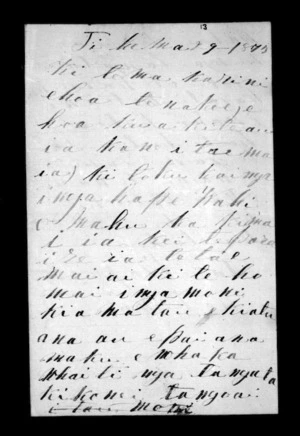 13
Ti he Mas 9 - 1875
ki te ma karini
ehoa tenakoe
hoa kua kite au
ia kane i tae ma
ia) ki toku kainga
inga hape Pahi
e maku ta
i ia kei te para
ia te tae
mai ai ki te ho
mai i nga moni
kia matau e kiatu
ana au e pai ana
maku e whaka
whaiti nga tangata
ki konei tangoai
i tau moni